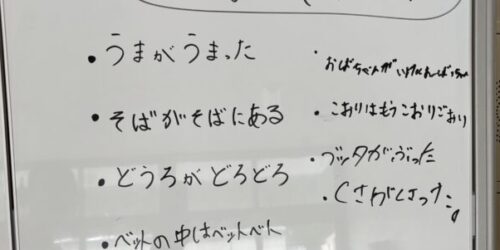 ・うまがうまった
・そばがそばにある
・どうろがどろどろ
・ベットの中はベットベト
・おばちゃんが
・こおりはもうこおりごおり
・ブッタがぶった
・くさがくさった。